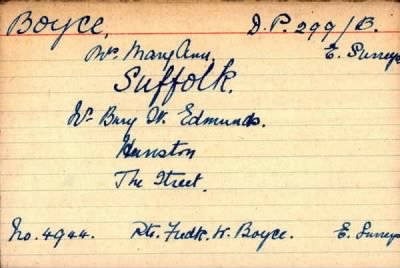 Boyce, D.P. 299/B.
Mrs MaryAnn, E. Surreys
Suffolk.
Nr Bury St. Edmunds.
Hunston
The Street.
No. 4944. Pte. Fredk. W. Boyce. E. Surreys